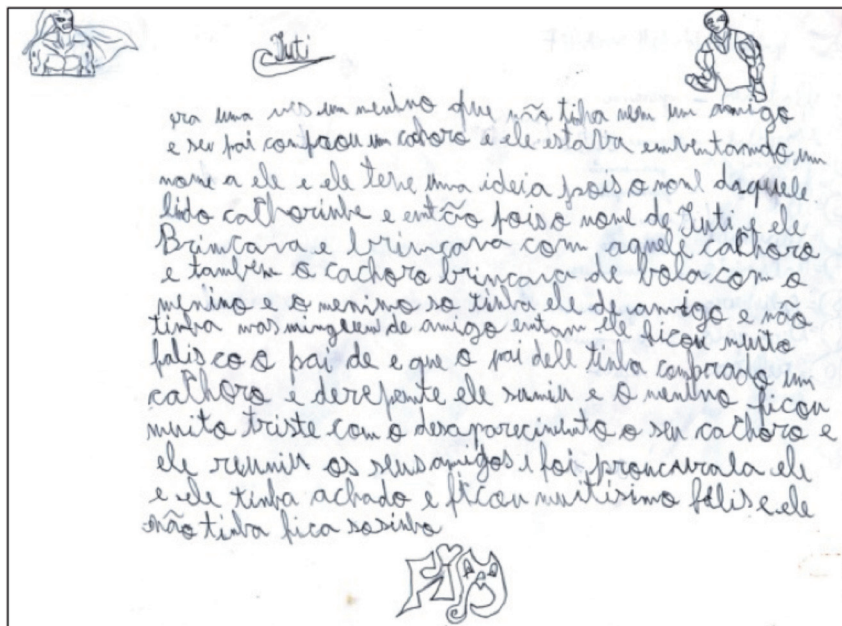 Tuti
era uma ves um menino que não tinha nem um amigo
e seu pai conprou um cahoro e ele estava emventando um
nome a ele e ele teve uma ideia pois o nome daquele
lido cathorinho e então pois o nome de Tuti e ele
Brimcava e brimcava com aquele cathoro
e também o cachoro brincava de bola com o
menino e o menino so tinha ele de amigo e não
tinha mas mingeem de amigo entam ele ficou muito
falis co o pai de e que o pai dele tinha comprado um
cathoro e derepente ele sumiu e o menino ficou
muito triste com o desaparecimento o seu cathoro e
ele reuniu os seus amigos e foi procurala ele
e ele tinha achado e ficou muitisimo félis e ele
não tinha fica sosinho
FIM